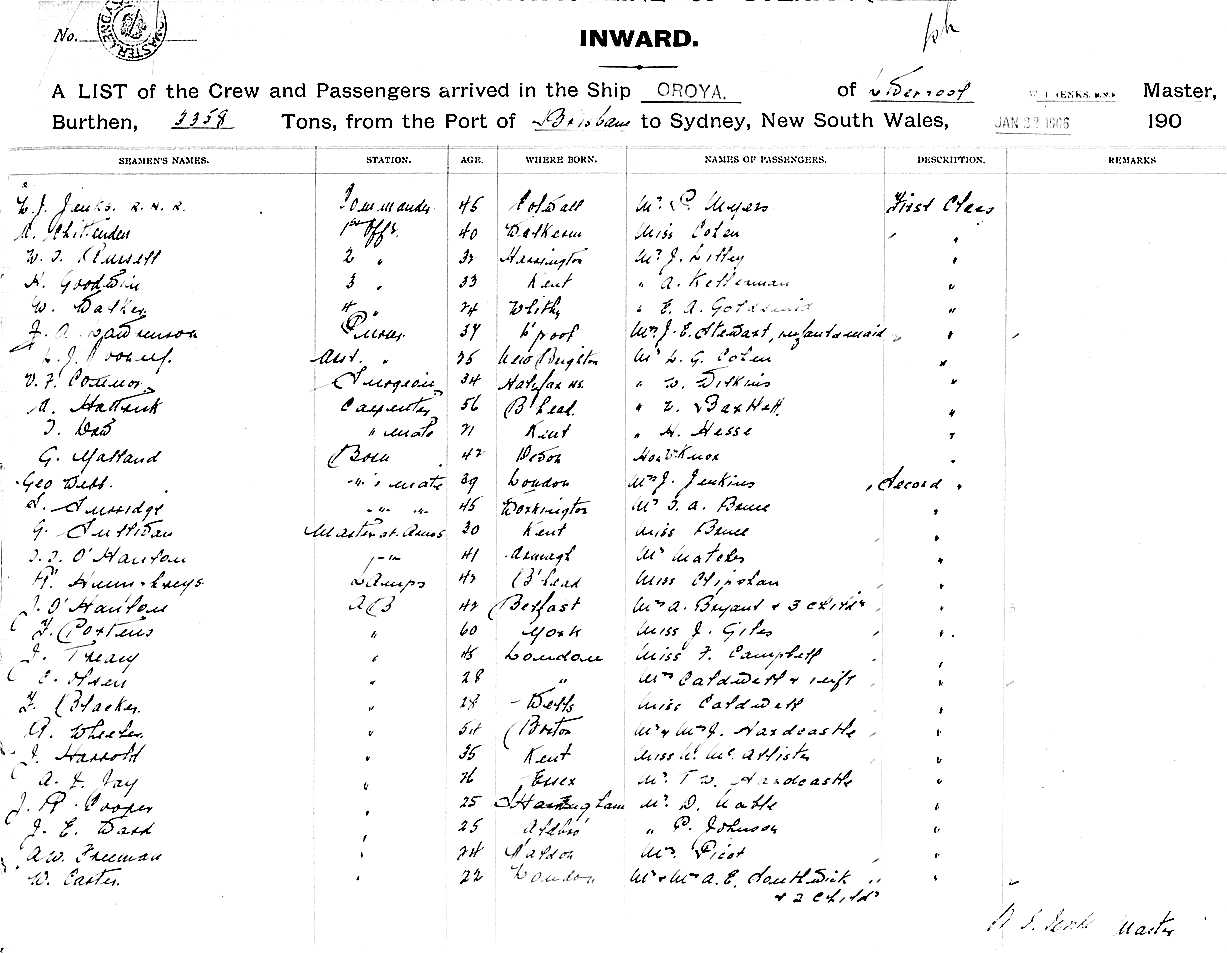 No.
INWARD.
A LIST of the Crew and Passengers arrived in the Ship OROYA. of Liverpool W. J. JENKS. R.N.R. Master,
Burthen, 3358 Tons, from the Port of Brisbane to Sydney, New South Wales, JAN 27 1906 190
SEAMEN'S NAMES. STATION. AGE. WHERE BORN. NAMES OF PASSENGERS. DESCRIPTION. REMARKS
W. J. Jenks. R. N. R. Commander 45 Colwall Mr P. Myers First Class
A. Chittenden 1st Offr. 40 Miss Cohen "
W. J. Russell 2 " 32 Kensington Mr J. Lilley "
H. Goodwin 3 " 33 Kent " A. Kellerman "
W. Walker 4 " 24 Whitby " E. A. Goldsmid "
F. A. Lawrenson Purser 37 L'pool Mrs J. E. Stewart, infant & maid "
L. J. Asst. " 25 New Brighton Mr L. G. Cohen "
V. F. Connor Surgeon 34 Halifax NS. " W. Wilkins "
A. Carpenter 56 B'head " Bartlett "
" mate 21 Kent " H. Hesse "
G. Bosn 42 Devon Hon Knox "
Geo Webb. " 's mate 39 London Mrs J. Jenkins Second "
Surridge " " " 45 Workington Mr S. A. Bruce "
G. Sullivan Master at Arms 30 Kent Miss Bruce "
O'Hanlon " 41 Armagh Mr "
Humphreys Lamps 42 B'head Miss "
J. O'Hanlon AB 42 Belfast Mrs A. Bryant & 3 Childn "
F. Porteus " 60 York Miss J. Giles "
J. Treacy " 45 London Miss F. Campbell "
C. Olsen " 28 " Mrs Caldwell & inft "
F. Blacker " 28 Wells Miss Caldwell "
R. Wheeler " 54 Mr & Mrs J. Hardcastle "
J. Harrold " 35 Kent Miss McAllister "
A. F. Jay " 26 Essex Mr T W. Hardcastle "
J. R. Cooper " 25 Mr D. "
J. E. Ward " 25 Aldbro' " P. Johnson "
A W. Freeman " 24 Maldon Mrs "
W. Easter " 22 London Mr & Mrs A. E. Southwick "
& 2 Childn
W. J. Jenks Master